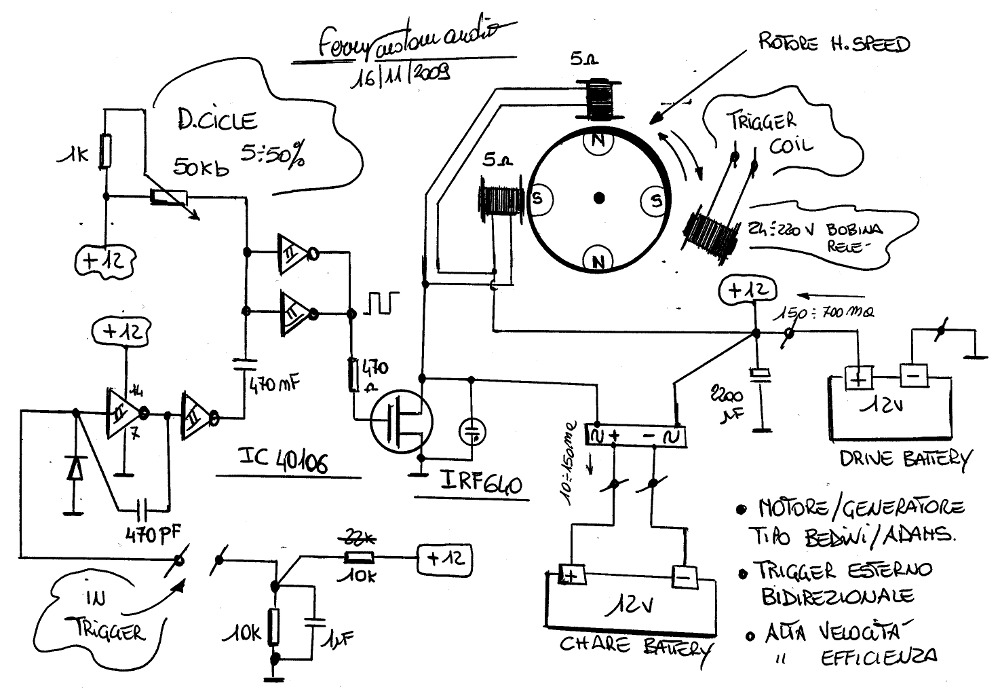 Ferrycustom audio
16/11/2009
ROTORE H. SPEED
5Ω
D.CICLE
5÷50%
1K
50Kb
+12
5Ω
N
S
S
N
TRIGGER
COIL
24÷220V BOBINA
RELE-
+12
470
Ω
+12
14
7
470mF
IC 40106
IRF640
470PF
150÷700mA
2200
µF
+
-
12V
DRIVE BATTERY
+ -
10÷150mA
+
-
12V
CHARE BATTERY
IN
TRIGGER
22K
10K
+12
10K
1µF
• MOTORE/GENERATORE
TIPO BEDINI/ADAMS.
• TRIGGER ESTERNO
BIDIREZIONALE
• ALTA VELOCITÀ
" EFFICIENZA